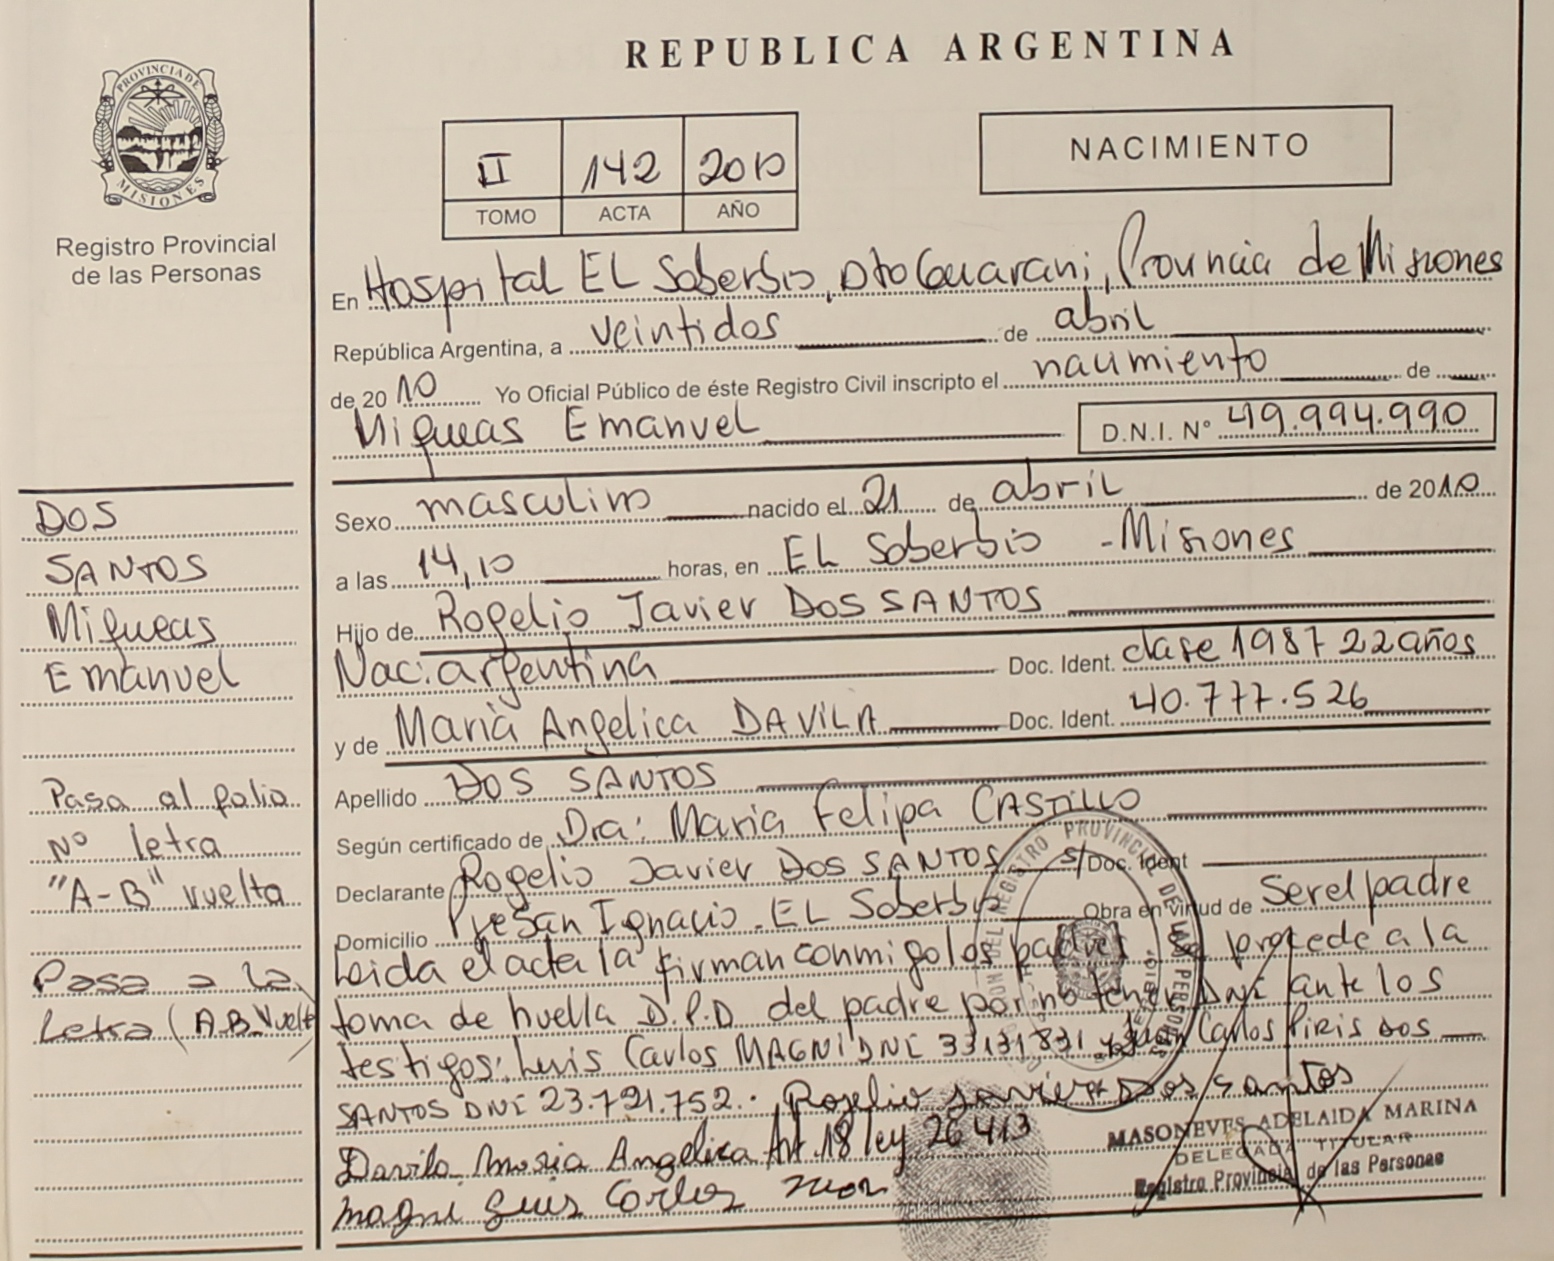 REPUBLICA ARGENTINA
PROVINCIA DE
MISIONES
Registro Provincial
de las Personas
II 142 2010
TOMO ACTA AÑO
NACIMIENTO
En Hospital EL Soberbio, Dto Guarani, Provincia de Misiones
República Argentina, a veintidos de abril
de 2010 Yo Oficial Público de éste Registro Civil inscripto el nacimiento de
Miqueas Emanuel D.N.I. N° 49.994.990
Sexo masculino nacido el 21 de abril de 2010
a las 14,10 horas, en EL Soberbio - Misiones
Hijo de Rogelio Javier DOS SANTOS
Nac: argentina Doc. Ident. clase 1987 22 años
y de Maria Angelica DAVILA Doc. Ident. 40.777.526
Apellido DOS SANTOS
Según certificado de Dra: Maria Felipa CASTILLO
Declarante Rogelio Javier DOS SANTOS s/ Doc. Ident
Domicilio Pje San Ignacio - EL Soberbio Obra en virtud de Ser el padre
Leida el acta la firman conmigo los padres se procede a la
toma de huella D.P.D. del padre por no tener DNI ante los
testigos: Luis Carlos MAGNI DNI 33131831 y Juan Carlos Piris DOS
SANTOS DNI 23.721.752. Rogelio Javier Dos Santos
Davila Maria Angelica Art. 18 ley 26413
Magni Luis Carlos
MASONEVES ADELAIDA MARINA
DELEGADA TITULAR
Registro Provincial de las Personas
DOS
SANTOS
Miqueas
Emanuel
Pasa al folio
N° letra
"A-B" vuelta
Pasa a la
Letra (A.B. Vuelta)